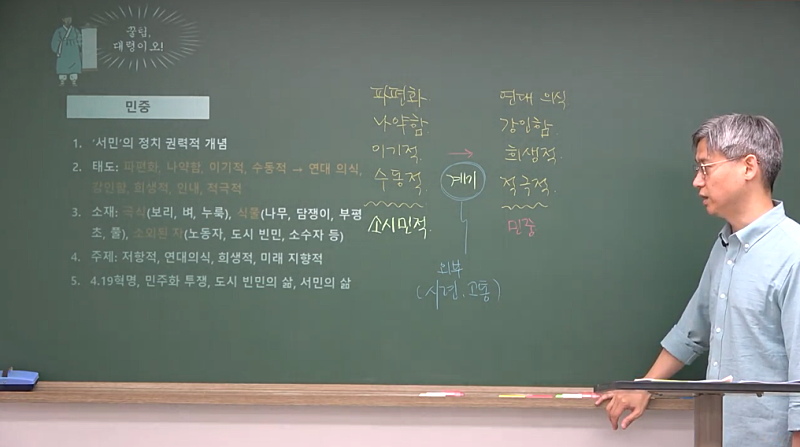 꿇힘,
대령이오!
민중
1. '서민'의 정치 권력적 개념
2. 태도: 파편화, 나약함, 이기적, 수동적 → 연대 의식,
강인함, 희생적, 인내, 적극적
3. 소재: 곡식(보리, 벼, 누룩), 식물(나무, 담쟁이, 부평
초, 풀), 소외된 자(노동자, 도시 빈민, 소수자 등)
4. 주제: 저항적, 연대의식, 희생적, 미래 지향적
5. 4.19혁명, 민주화 투쟁, 도시 빈민의 삶, 서민의 삶
파편화
나약함
이기적.
수동적.
소시민적.
→
계기
외부
(시련, 고통)
연대 의식
강인함
희생적.
적극적.
민중